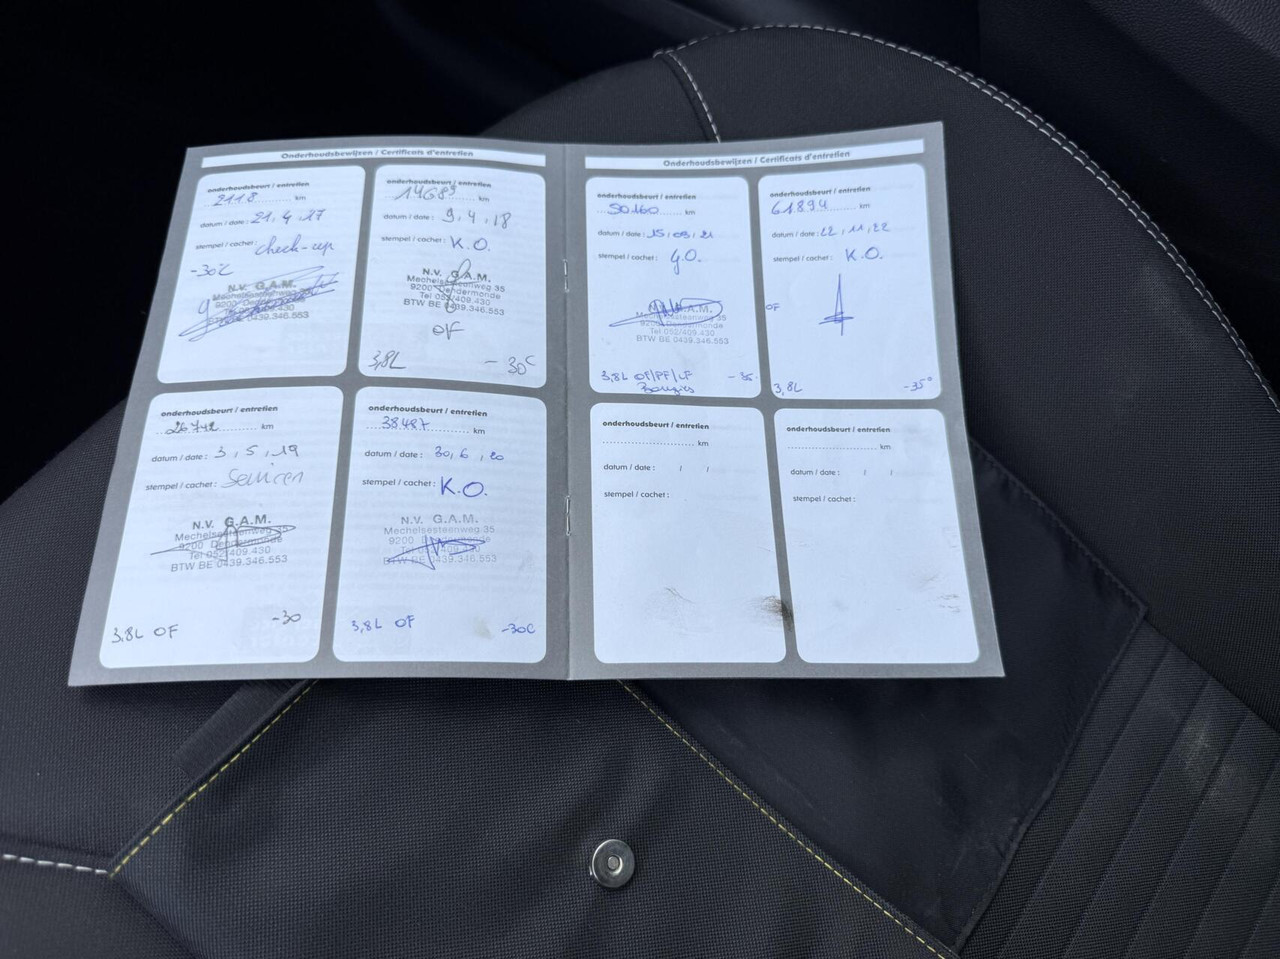 Onderhoudsbewijzen / Certificats d'entretien
onderhoudsbeurt / entretien
2118 km
datum / date : 21, 4, 17
stempel / cachet : check-up
-30°C
N.V. G.A.M.
onderhoudsbeurt / entretien
14689 km
datum / date : 9, 4, 18
stempel / cachet : K.O.
N.V. G.A.M.
Mechelsesteenweg 35
9200 Dendermonde
Tel 052/409.430
BTW BE 0439.346.553
OF
3,8L -30C
onderhoudsbeurt / entretien
26742 km
datum / date : 3, 5, 19
stempel / cachet :
N.V. G.A.M.
Mechelsesteenweg 35
9200 Dendermonde
Tel 052/409.430
BTW BE 0439.346.553
3,8L OF -30
onderhoudsbeurt / entretien
38487 km
datum / date : 30, 6, 20
stempel / cachet : K.O.
N.V. G.A.M.
Mechelsesteenweg 35
9200 Dendermonde
Tel 052/409.430
BTW BE 0439.346.553
3,8L OF -30C
Onderhoudsbewijzen / Certificats d'entretien
onderhoudsbeurt / entretien
50160 km
datum / date : 15, 09, 21
stempel / cachet : G.O.
N.V. G.A.M.
Mechelsesteenweg 35
9200 Dendermonde
Tel 052/409.430
BTW BE 0439.346.553
3,8L OF/PF/LF -35
Bougies
onderhoudsbeurt / entretien
61894 km
datum / date : 22, 11, 22
stempel / cachet : K.O.
OF
3,8L -35°
onderhoudsbeurt / entretien
km
datum / date : / /
stempel / cachet :
onderhoudsbeurt / entretien
km
datum / date : / /
stempel / cachet :